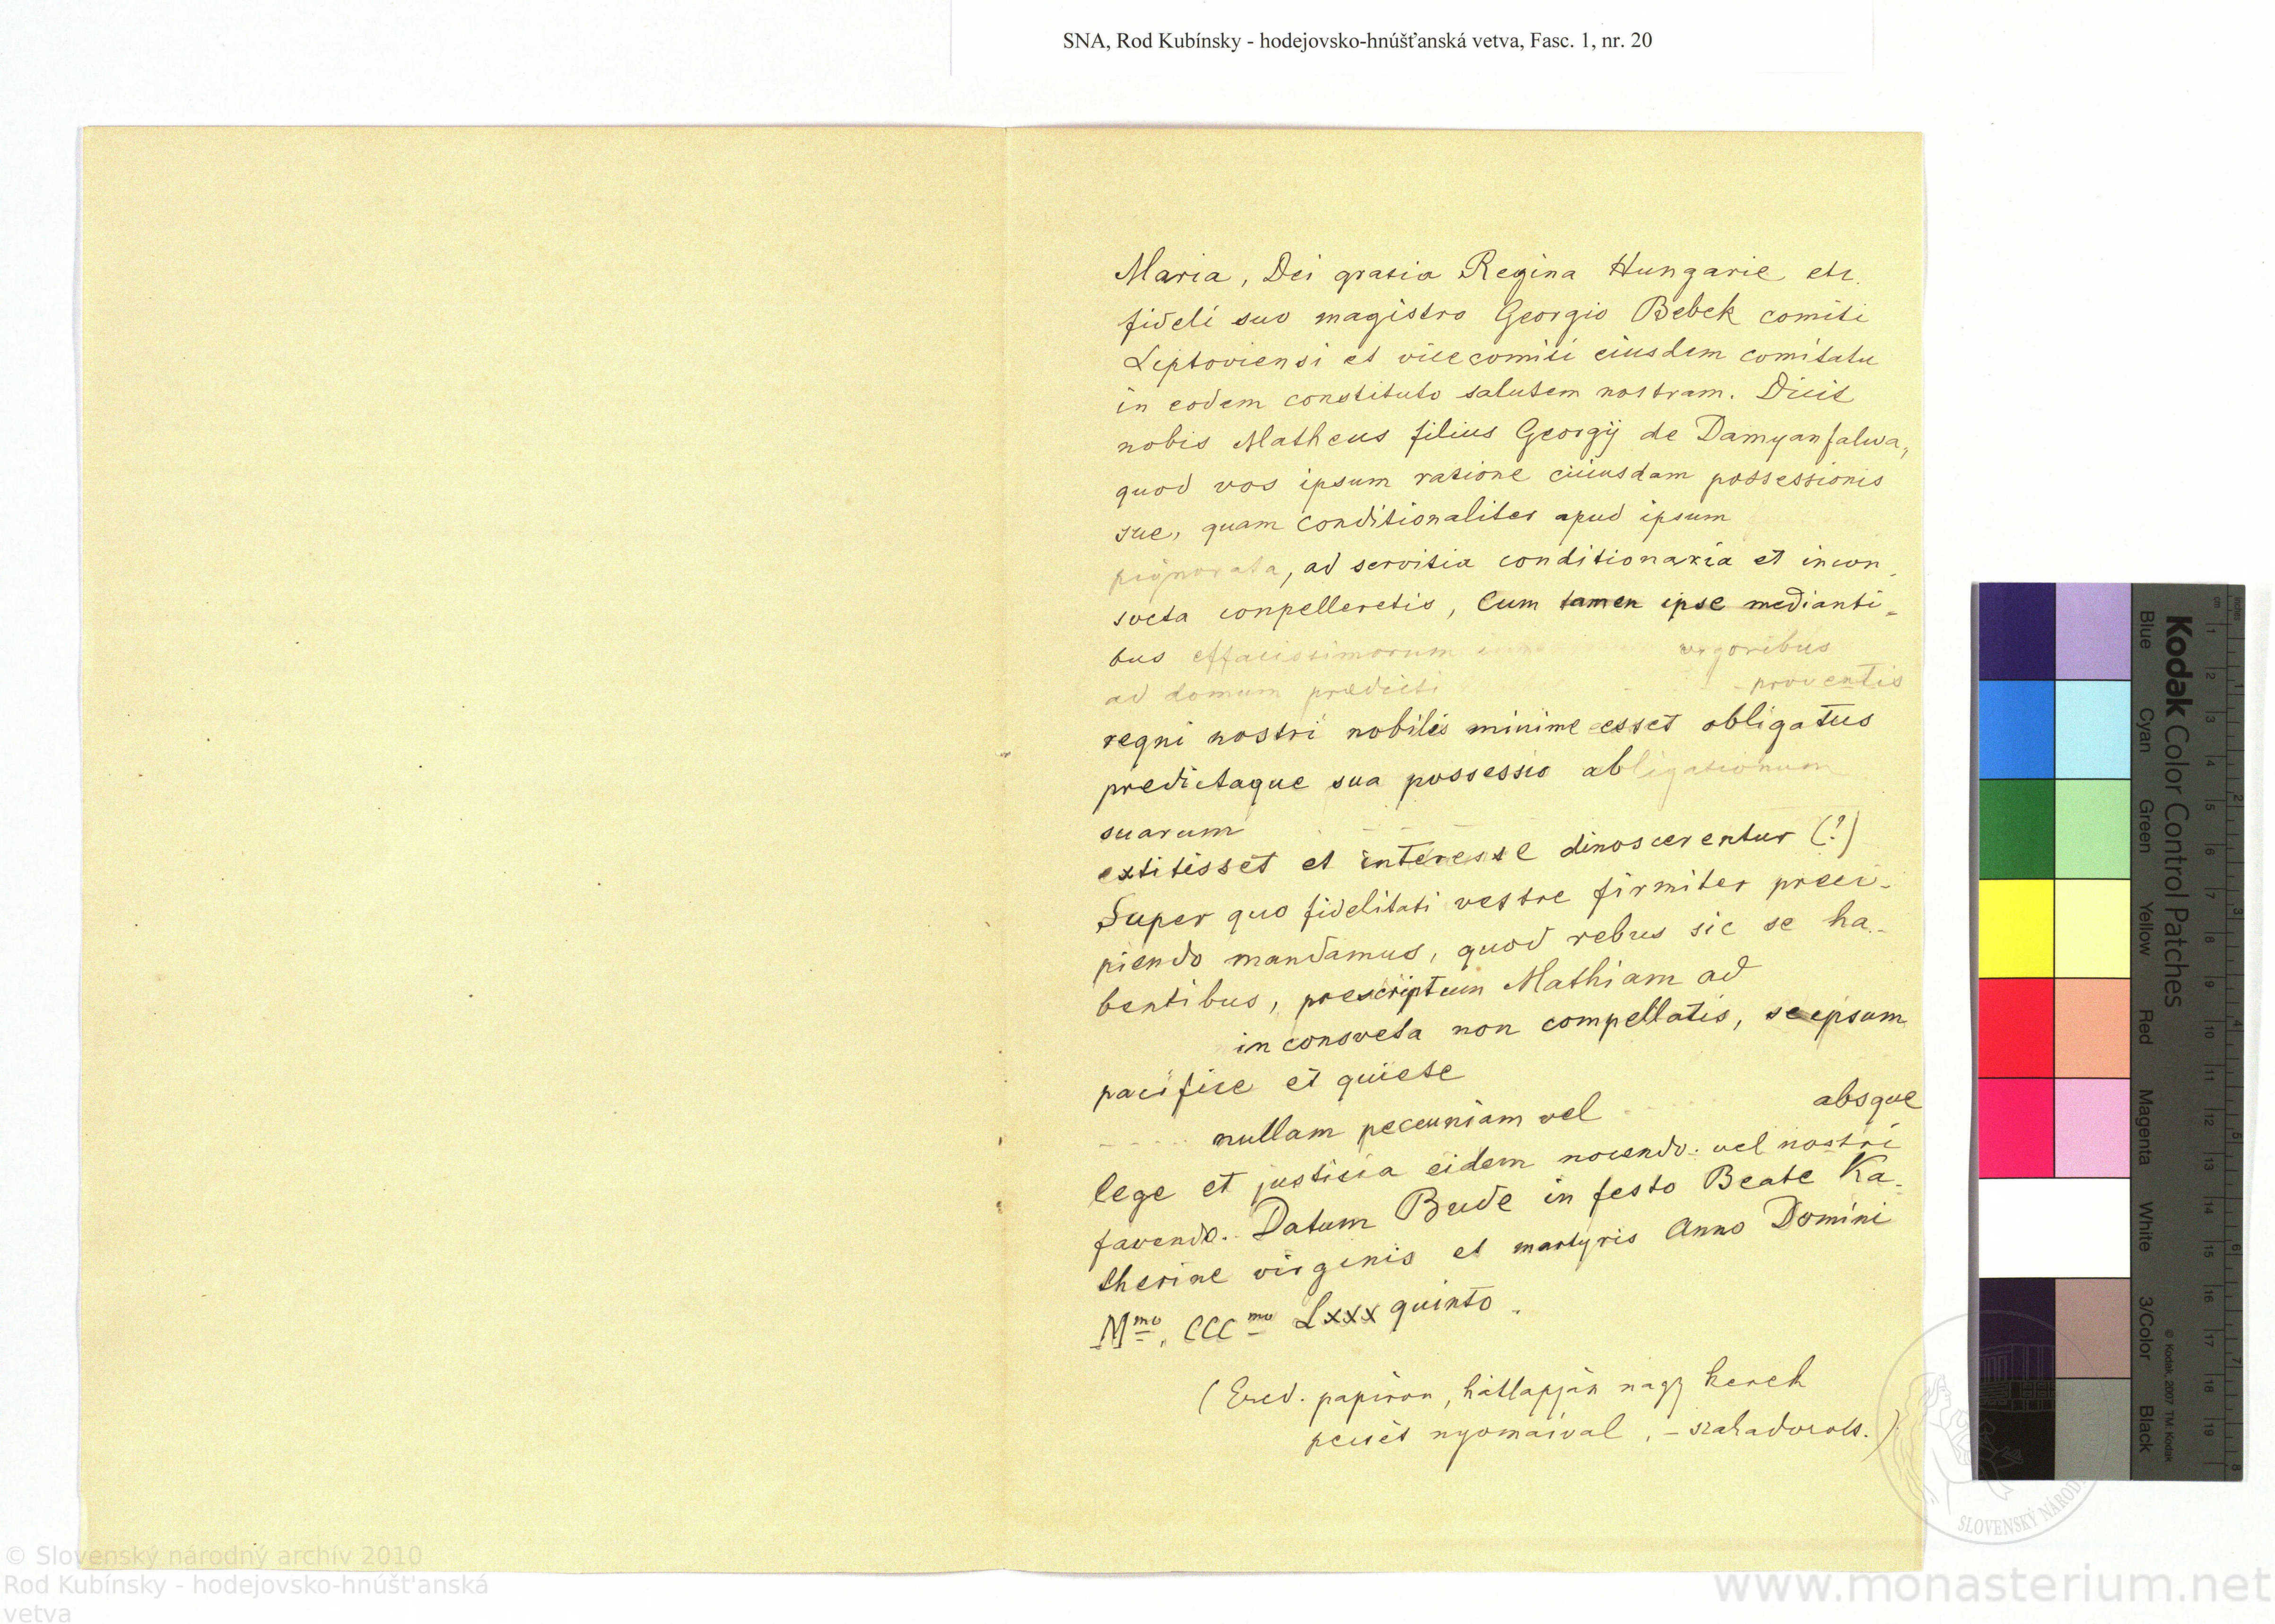 SNA, Rod Kubínsky - hodejovsko-hnúšťanská vetva, Fasc. 1, nr. 20
Maria, Dei gratia Regina Hungarie etc.
fideli suo magistro Georgio Bebek comiti
Liptoviensi et vicecomiti eiusdem comitatu
in eodem constituto salutem nostram. Dicit
nobis Matheus filius Georgij de Damyanfalwa,
quod vos ipsum ratione cuiusdam possessionis
sue, quam conditionaliter apud ipsum
pignorata, ad servitia conditionaria et incon-
sveta conpelleretis, Cum tamen ipse medianti-
bus efficacissimorum vigoribus
ad domum predicti proventis
regni nostri nobilis minime esset obligatus
predictaque sua possessio abligationum
suarum
extitisset et interesse dinoscerentur (?)
Super quo fidelitati vestre firmiter preci-
piendo mandamus, quod rebus sic se ha-
bentibus, prescriptum Mathiam ad
inconsveta non compellatis, seipsum
pacifice et quiete
nullam pecuniam vel absque
lege et justicia eidem nocendo. vel nostri
favendo. Datum Bude in festo Beate Ka-
therine virginis et martyris Anno Domini
Mmo, CCCmo Lxxx quinto.
(Ered. papiron, hátlapján nagy kerek
pecsét nyomaival, – szakadozott.)
Kodak Color Control Patches
Blue Cyan Green Yellow Red Magenta White 3/Color Black
© Kodak, 2007 TM: Kodak
SLOVENSKÝ NÁROD
© Slovenský národný archív 2010
Rod Kubínsky - hodejovsko-hnúšt'anská
vetva
www.monasterium.net